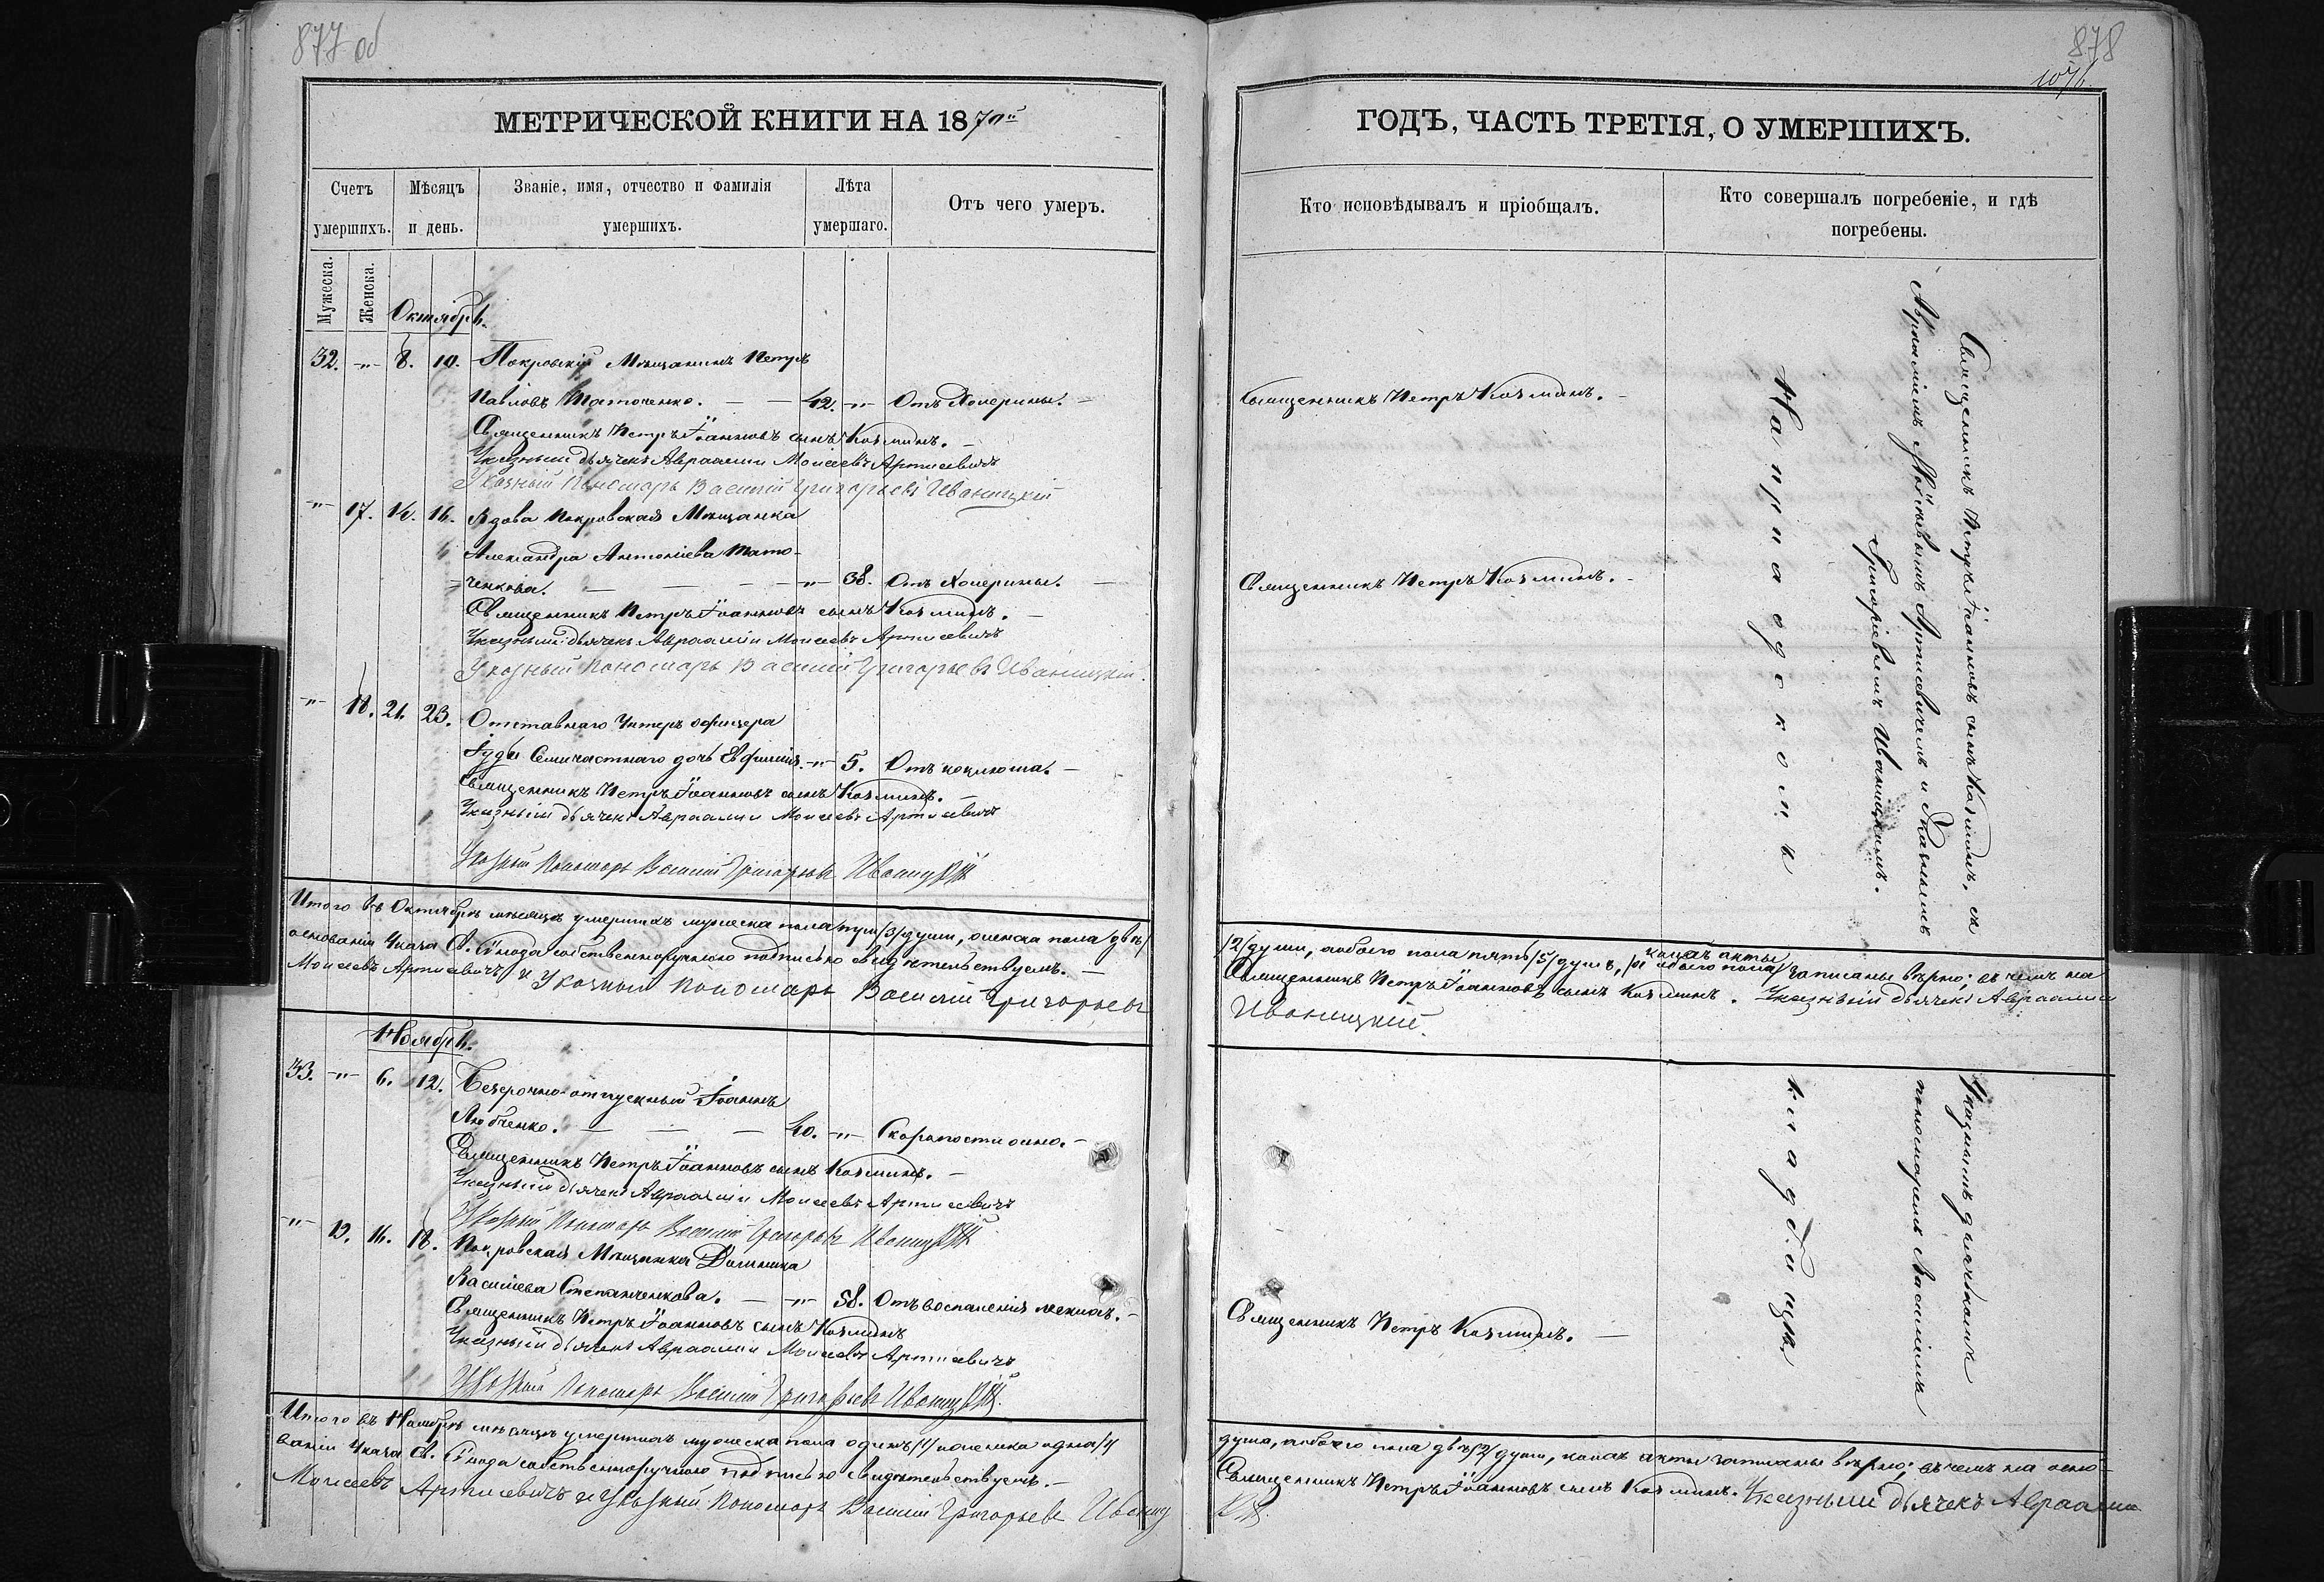 877 об
МЕТРИЧЕСКОЙ КНИГИ НА 1870й
Счетъ умершихъ.
Мѣсяцъ и день.
Званіе, имя, отчество и фамилія умершихъ.
Лѣта умершаго.
Отъ чего умеръ.
Мужеска.
Женска.
Октябрь.
32. -"- 8. 10. Покровскій Мѣщанинъ Петръ
Павловъ Таточенко. — — 42. -"- Отъ Холерины. —
Священникъ Петръ Іоанновъ сынъ Козминъ. —
Указный дьячекъ Авраамій Моисеевъ Артисевичъ
Указный Пономарь Василій Григорьевъ Иваницкій
-"- 17. 14. 16. Вдова Покровская Мѣщанка
Александра Антоніева Тато-
ченкова. — — — -"- 38. Отъ Холерины. —
Священникъ Петръ Іоанновъ сынъ Козминъ. —
Указный дьячекъ Авраамій Моисеевъ Артисевичъ
Указный Пономарь Василій Григорьевъ Иваницкій.
-"- 18. 21. 23. Отставнаго Унтеръ офицера
Іуды Семичастнаго дочь Евфимія. -"- 5. Отъ коклюша. —
Священникъ Петръ Іоанновъ сынъ Козминъ. —
Указный дьячекъ Авраамій Моисеевъ Артисевичъ
Указный Пономарь Василій Григорьевъ Иваницкій
Итого въ Октябрѣ мѣсяцѣ умершихъ мужеска пола три /3/ души, женска пола /двѣ/
основаніи Указа Св. Сѵнода собственноручною подписью свидѣтельствуемъ. —
Моисеевъ Артисевичъ и Указный Пономарь Василій Григорьевъ
Ноябрь.
33. -"- 6. 12. Безсрочно-отпускный Іоаннъ
Любченко. — — — 40. -"- Скоропостижно. —
Священникъ Петръ Іоанновъ сынъ Козминъ. —
Указный дьячекъ Авраамій Моисеевъ Артисевичъ
Указный Пономарь Василій Григорьевъ Иваницкій
-"- 19. 16. 18. Покровская Мѣщанка Домникія
Василіева Степанченкова. — -"- 58. Отъ воспаленія легкихъ. —
Священникъ Петръ Іоанновъ сынъ Козминъ
Указный дьячекъ Авраамій Моисеевъ Артисевичъ
Указный Пономарь Василій Григорьевъ Иваницкій.
Итого въ Ноябрѣ мѣсяцѣ умершихъ мужеска пола одинъ /1/ и женска одна /1/
ваніи Указа Св. Сѵнода собственноручною подписью свидѣтельствуемъ. —
Моисеевъ Артисевичъ и Указный Пономарь Василій Григорьевъ Иваниц
878
ГОДЪ, ЧАСТЬ ТРЕТІЯ, О УМЕРШИХЪ.
Кто исповѣдывалъ и пріобщалъ.
Кто совершалъ погребеніе, и гдѣ погребены.
Священникъ Петръ Козминъ. —
Священникъ Петръ Козминъ. —
Священникъ Петръ Іоанновъ сынъ Козминъ, съ
Авраамiемъ Моисеевымъ Артисевичемъ и Указнымъ
Григоріевымъ Иваницкимъ.
На приходском ъ
/2/ души, а обоего пола пять /5/ душъ, коихъ акты записаны вѣрно; въ чемъ на
Священникъ Петръ Іоанновъ сынъ Козминъ. Указный дьячекъ Авраамій
Иваницкій.
Указнымъ дьячкомъ
пономаремъ Василіемъ
кладбищѣ.
Священникъ Петръ Козминъ. —
душа, а обоего пола двѣ /2/ души, коихъ акты записаны вѣрно; въ чемъ на осно-
Священникъ Петръ Іоанновъ сынъ Козминъ. Указный дьячекъ Авраамій
кій.